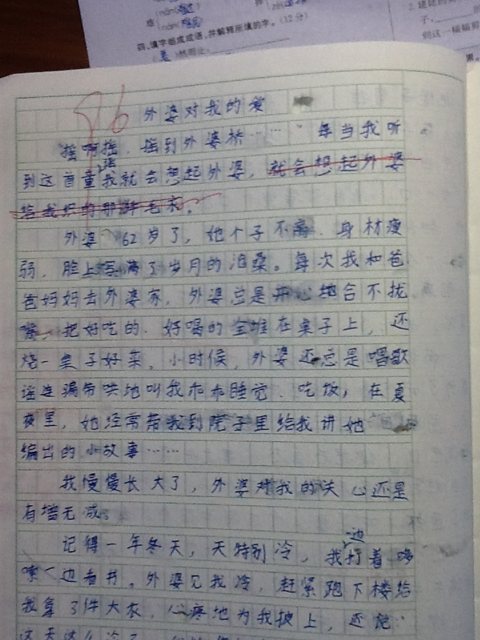 四、填字组成成语,并解释所填的字。(12分)
86
外婆对我的爱
“摇啊摇,摇到外婆桥……”每当我听
到这首童谣我就会想起外婆,就会想起外婆
给我织的那件毛衣。
外婆62岁了,她个子不高,身材瘦
弱,脸上写满了岁月的沧桑。每次我和爸
爸妈妈去外婆家,外婆总是开心地合不拢
嘴,把好吃的、好喝的全堆在桌子上,还
烧一桌子好菜。小时候,外婆还总是唱歌
谣连骗带哄地叫我乖乖睡觉、吃饭,在夏
夜里,她经常带我到院子里给我讲她
编出的小故事……
我慢慢长大了,外婆对我的关心还是
有增无减。
记得一年冬天,天特别冷,我边打着哆
嗦,边看书。外婆见我冷,赶紧跑下楼给
我拿了件大衣,心疼地为我披上,还说: